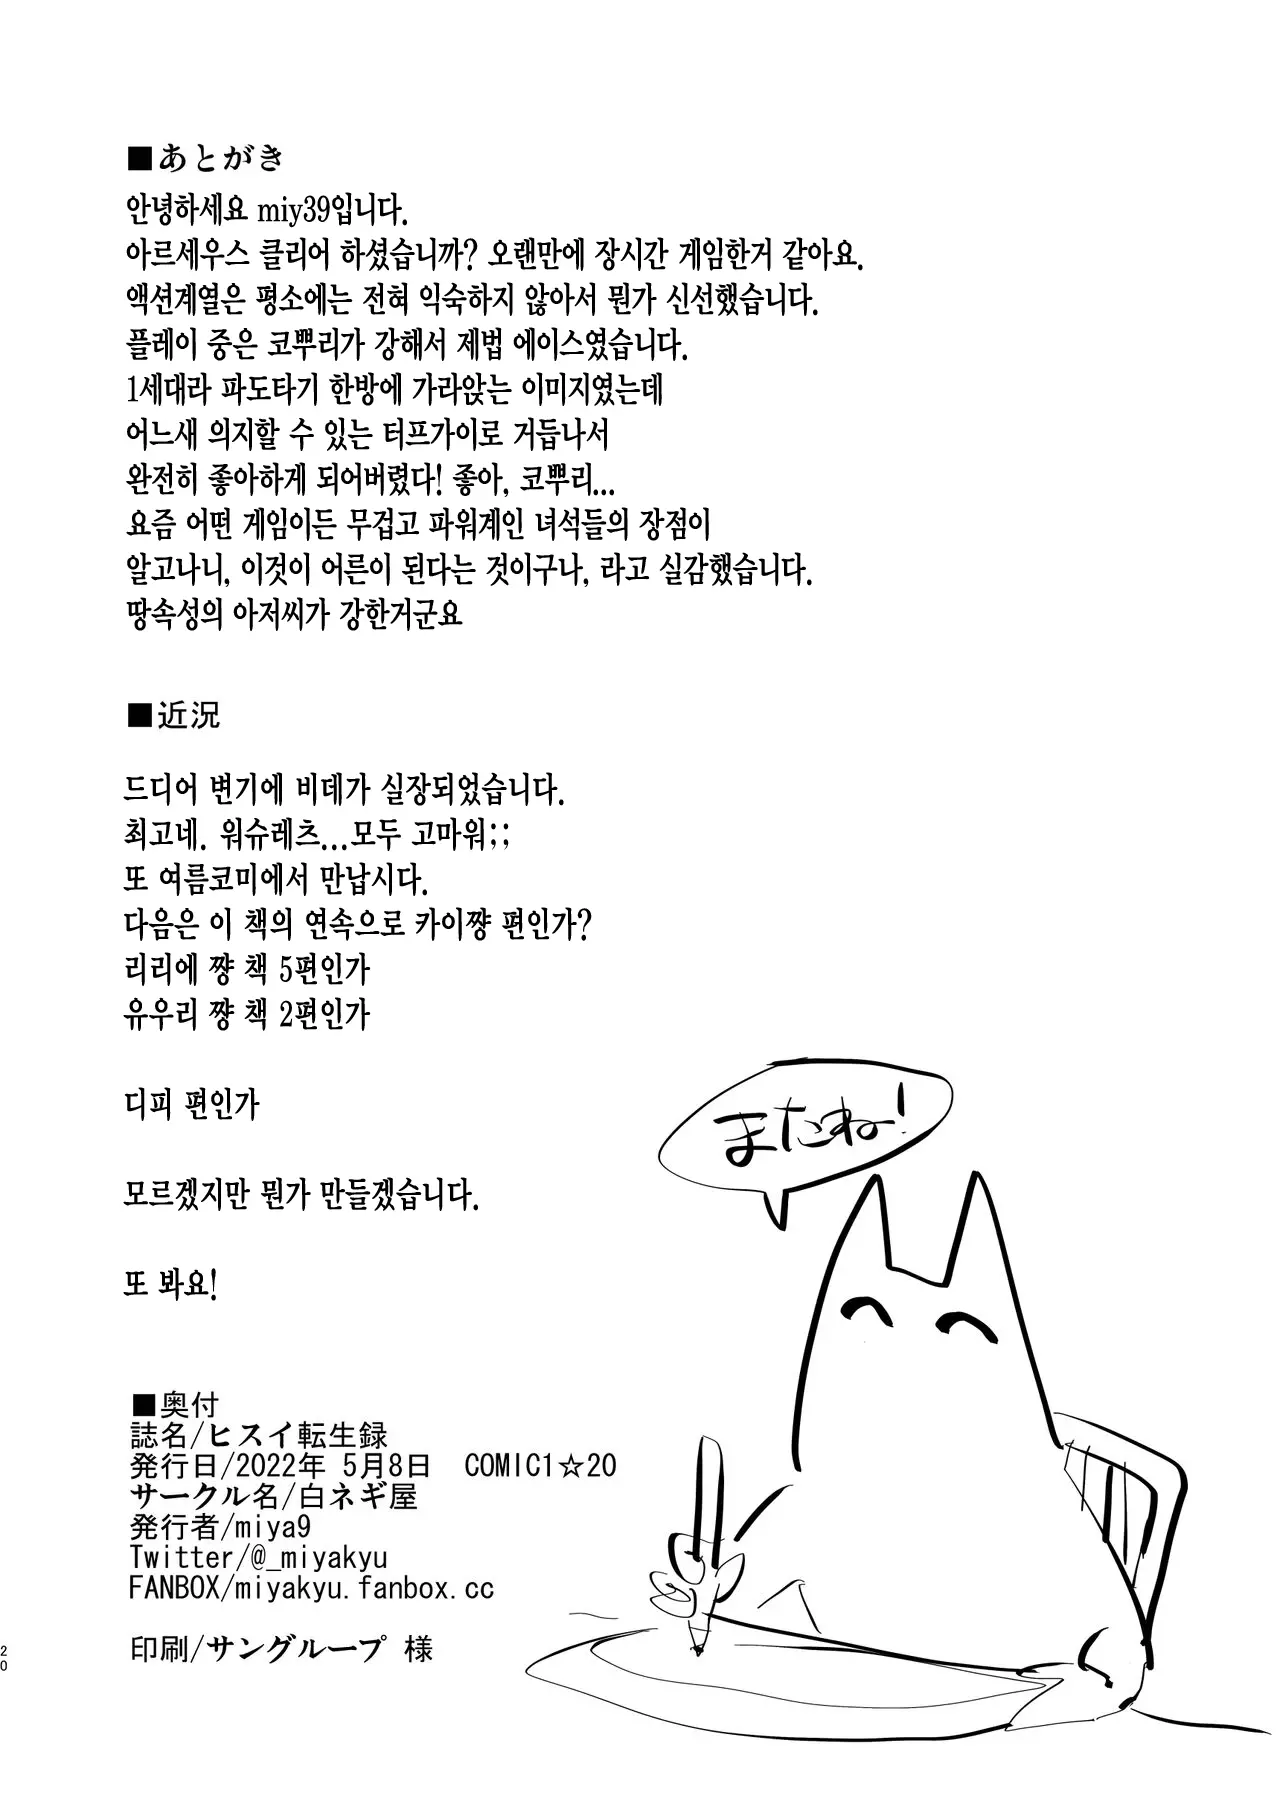 ■あとがき
안녕하세요 miy39입니다.
아르세우스 클리어 하셨습니까? 오랜만에 장시간 게임한거 같아요.
액션계열은 평소에는 전혀 익숙하지 않아서 뭔가 신선했습니다.
플레이 중은 코뿌리가 강해서 제법 에이스였습니다.
1세대라 파도타기 한방에 가라앉는 이미지였는데
어느새 의지할 수 있는 터프가이로 거듭나서
완전히 좋아하게 되어버렸다! 좋아, 코뿌리...
요즘 어떤 게임이든 무겁고 파워계인 녀석들의 장점이
알고나니, 이것이 어른이 된다는 것이구나, 라고 실감했습니다.
땅속성의 아저씨가 강한거군요
■近況
드디어 변기에 비데가 실장되었습니다.
최고네. 워슈레츠...모두 고마워;;
또 여름코미에서 만납시다.
다음은 이 책의 연속으로 카이쨩 편인가?
리리에 쨩 책 5편인가
유우리 쨩 책 2편인가
디피 편인가
모르겠지만 뭔가 만들겠습니다.
또 봐요!
またね!
■奥付
誌名/ヒスイ転生録
発行日/2022年 5月8日 COMIC1☆20
サークル名/白ネギ屋
発行者/miya9
Twitter/@_miyakyu
FANBOX/miyakyu.fanbox.cc
印刷/サングループ 様
20